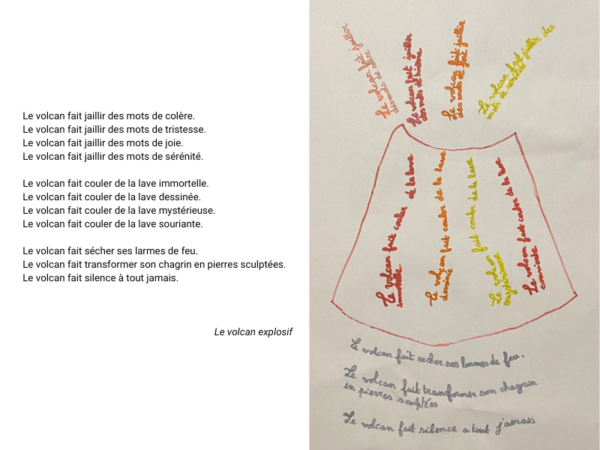 Le volcan fait jaillir des mots de colère.
Le volcan fait jaillir des mots de tristesse.
Le volcan fait jaillir des mots de joie.
Le volcan fait jaillir des mots de sérénité.
Le volcan fait couler de la lave immortelle.
Le volcan fait couler de la lave dessinée.
Le volcan fait couler de la lave mystérieuse.
Le volcan fait couler de la lave souriante.
Le volcan fait sécher ses larmes de feu.
Le volcan fait transformer son chagrin en pierres sculptées.
Le volcan fait silence à tout jamais.
Le volcan explosif
Le volcan fait jaillir
des mots de
Le volcan fait jaillir
des mots
Le volcan fait jaillir
des mots de joie
Le volcan fait jaillir des
mots de sérénité
Le volcan fait couler de la lave
immortelle
Le volcan fait couler de la lave
dessinée
Le volcan fait couler de la lave
mystérieuse
Le volcan fait couler de la lave
souriante
Le volcan fait sécher ses larmes de feu.
Le volcan fait transformer son chagrin
en pierres sculptées
Le volcan fait silence a tout jamais